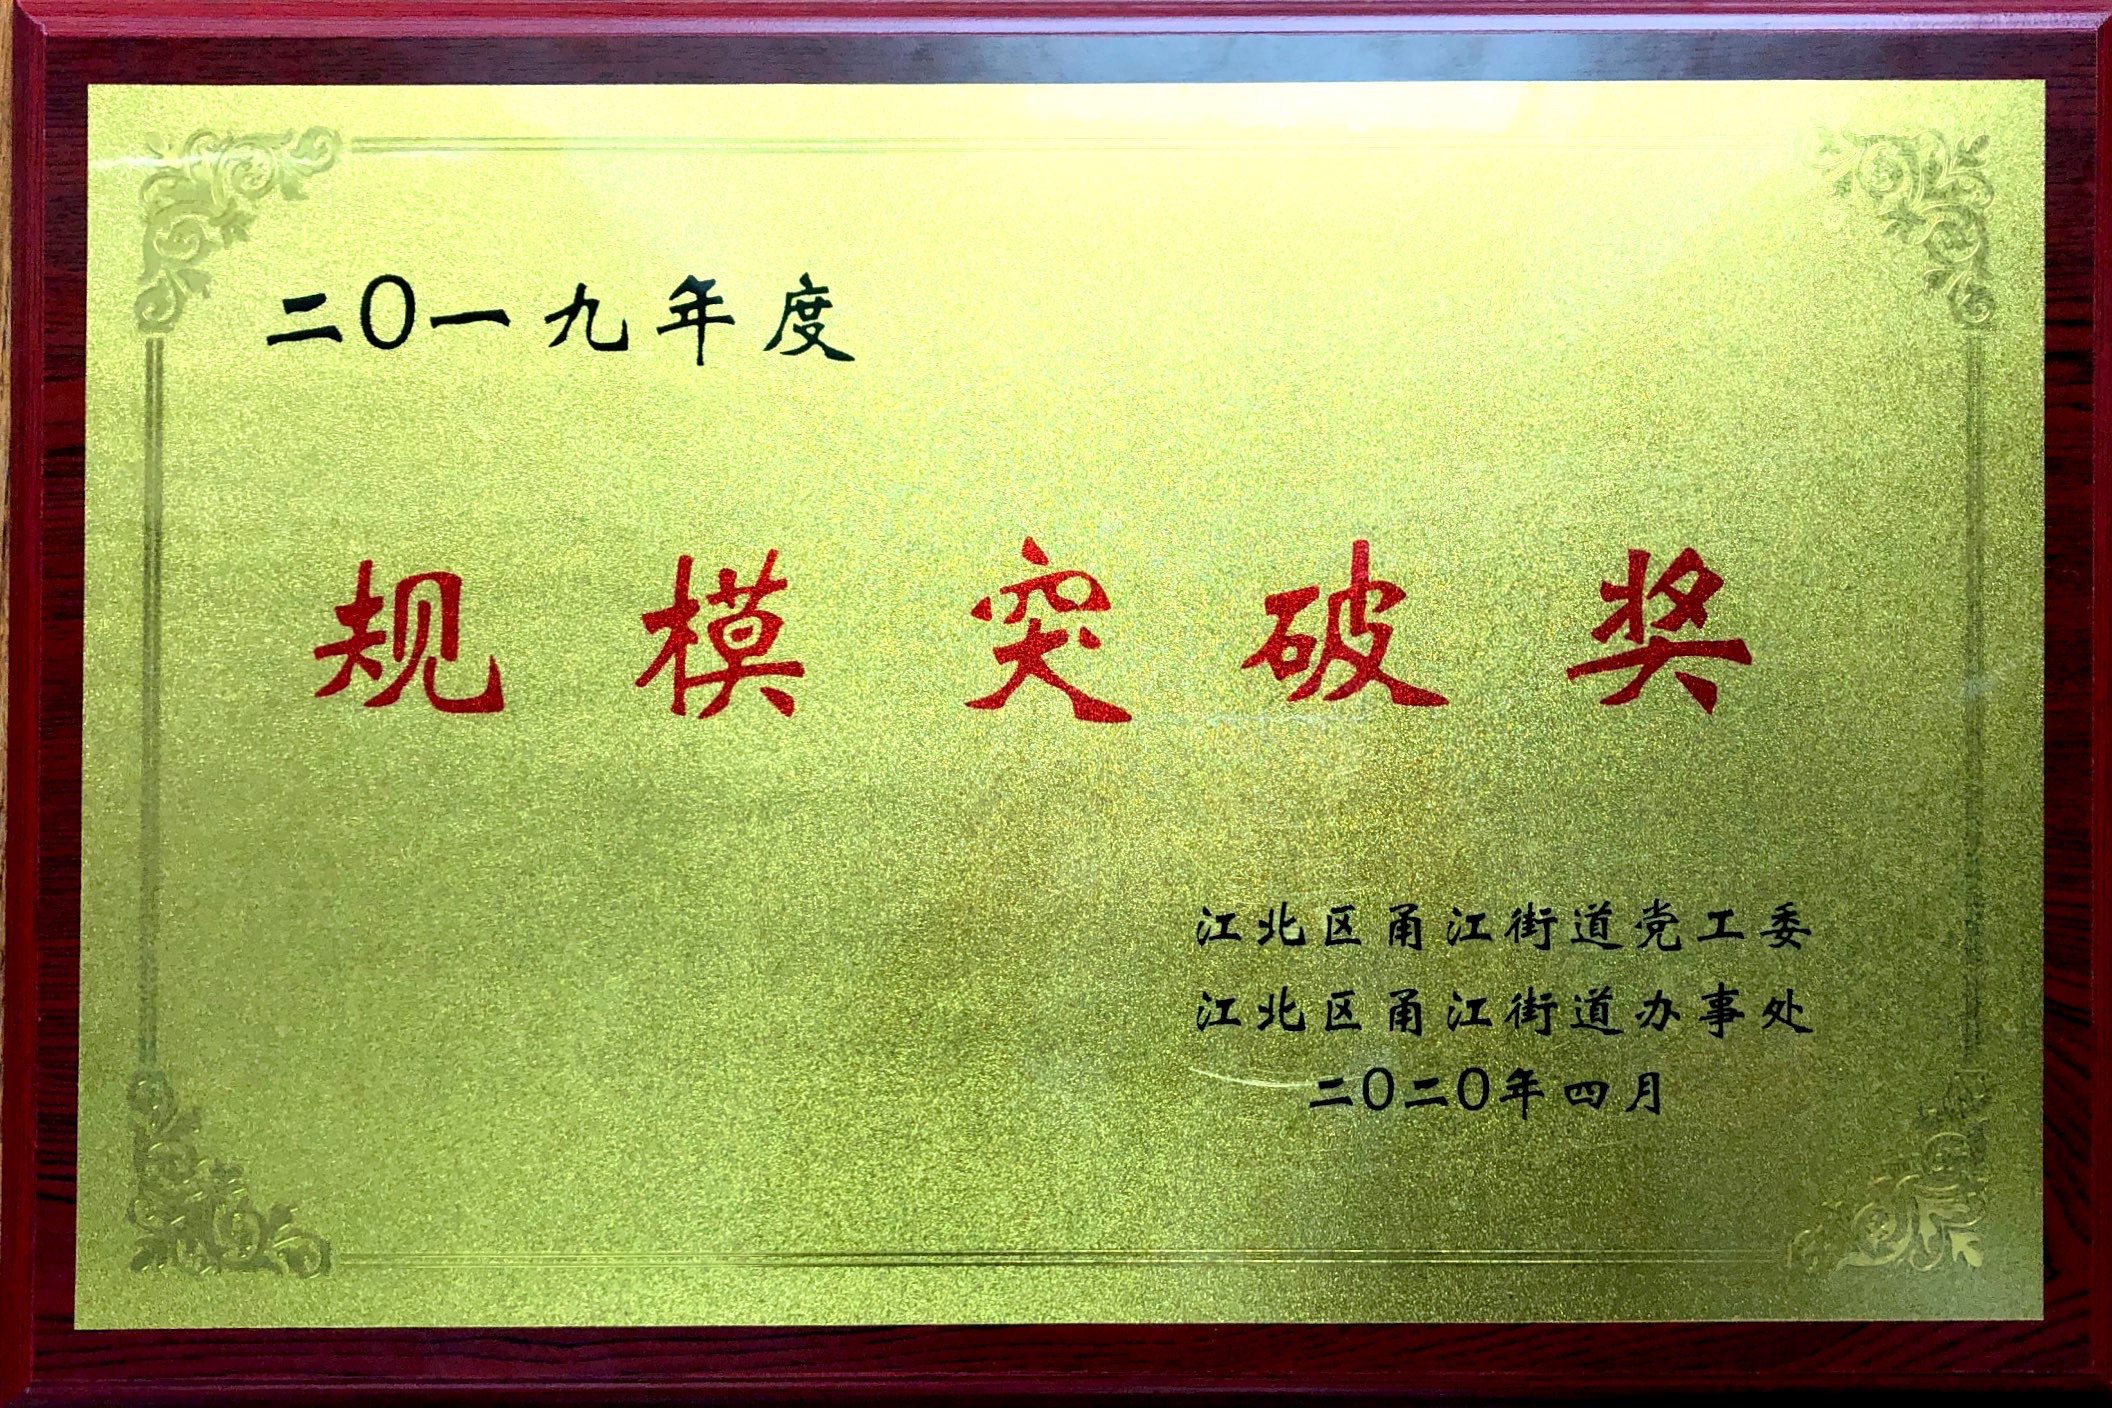 二〇一九年度
规模突破奖
江北区甬江街道党工委
江北区甬江街道办事处
二〇二〇年四月